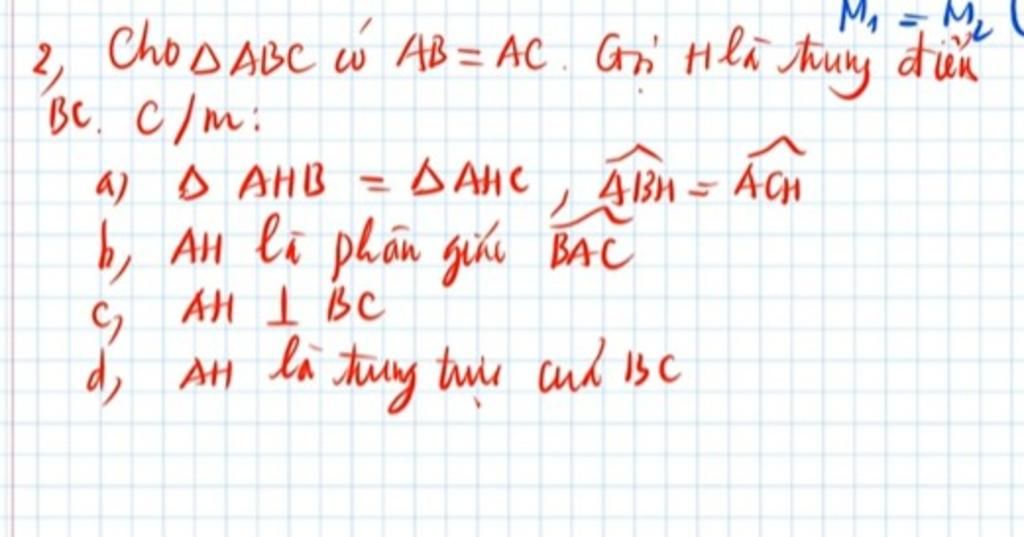 M₁ = M₂ (
2, Cho △ABC có AB = AC. Gọi H là trung điểm
BC. C/m:
a) △ AHB = △ AHC, \widehat{ABH} = \widehat{ACH}
b, AH là phân giác \widehat{BAC}
c, AH ⊥ BC
d, AH là trung trực của BC